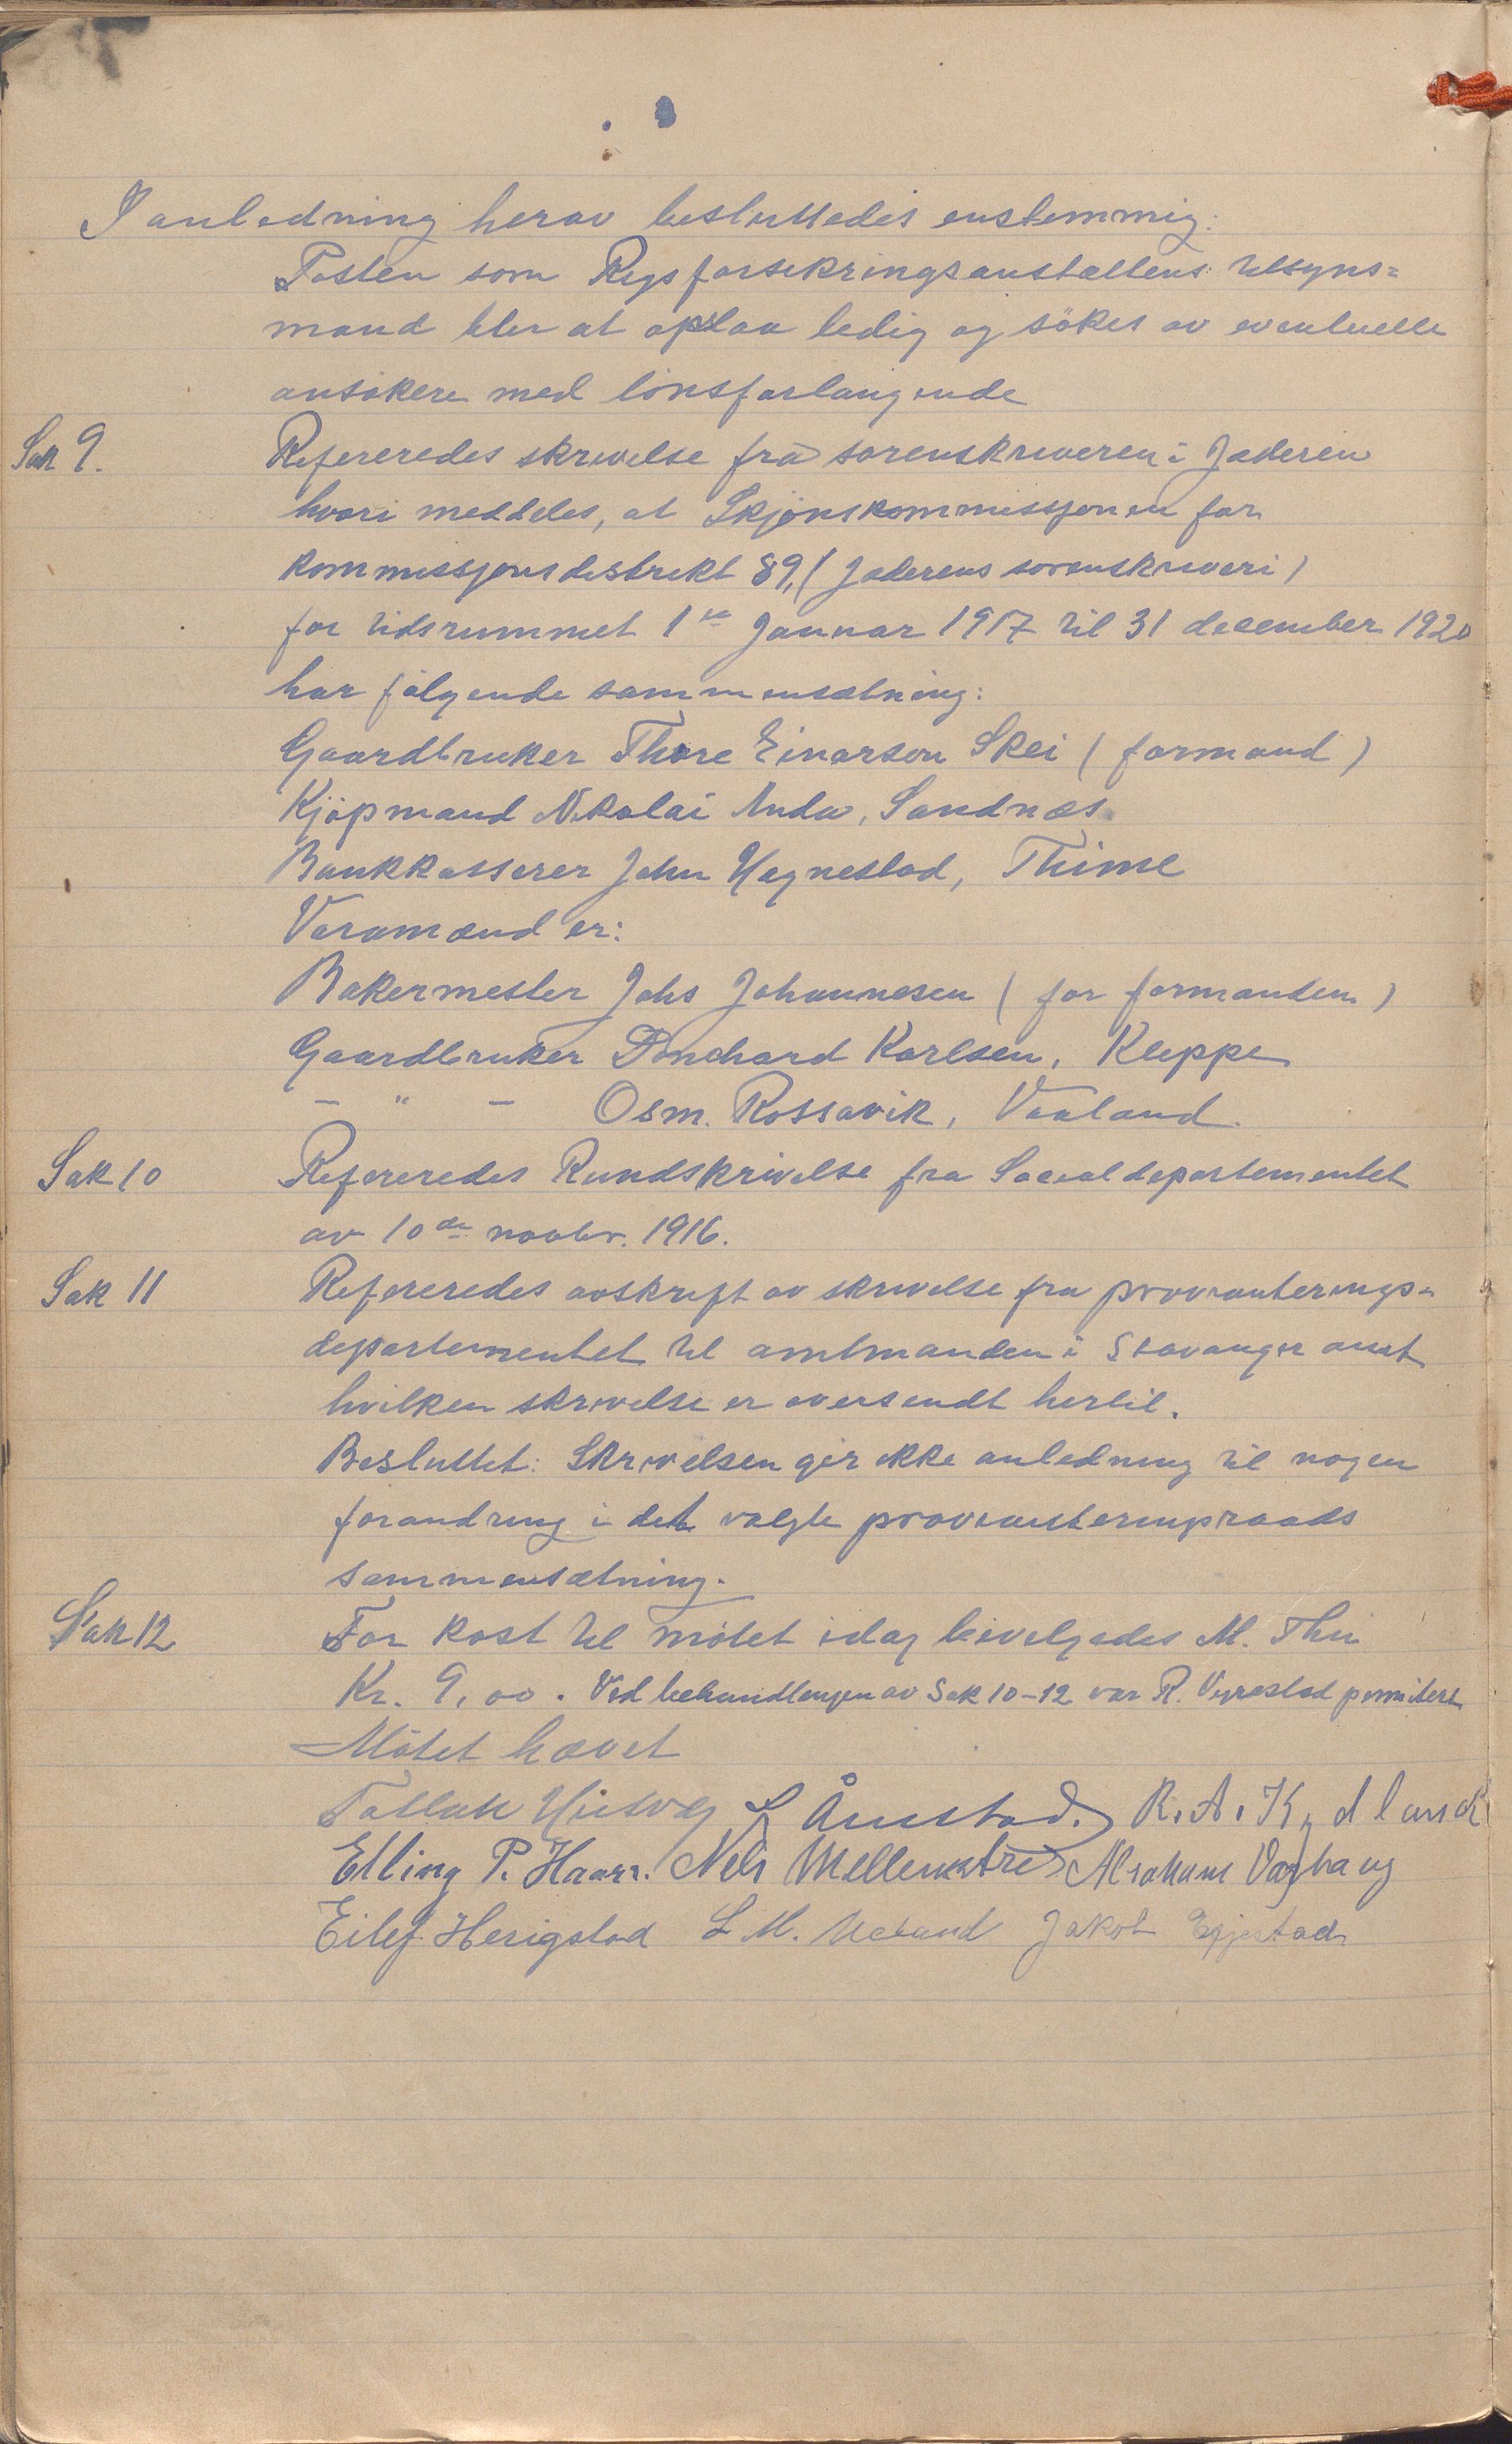 I anledning herav besluttedes enstemmig:
Posten som Rigsforsikringsanstaltens tilsyns=
mand blir at opslaa ledig og søkes av eventuelle
ansøkere med lønsforlangende
Sak 9. Refereredes skrivelse fra sorenskriveren i Jæderen
hvori meddeles, at Skjønskommissjonen for
kommissjonsdistrikt 89, (Jæderens sorenskriveri)
for tidsrummet 1ste Januar 1917 til 31 december 1920
har følgende sammensætning:
Gaardbruker Thore Einarson Skei (formand)
Kjøpmand Nikolai Anda, Sandnæs
Bankkasserer John Hognestad, Thime
Varamænd er:
Bakermester Johs Johannesen (for formanden)
Gaardbruker Ponchard Karlsen, Kleppe
- " - Osm. Rossavik, Vaaland.
Sak 10 Refereredes Rundskrivelse fra Socialdepartementet
av 10de novbr. 1916.
Sak 11 Refereredes avskrift av skrivelse fra provianterings-
departementet til amtmanden i Stavanger amt
hvilken skrivelse er oversendt hertil.
Besluttet: Skrivelsen gir ikke anledning til nogen
forandring i det valgte provianteringsraads
sammensætning.
Sak 12 For kost til møtet idag bevilgedes M. Thu
Kr. 9,00. Ved behandlingen av Sak 10-12 var R. Vigrestad permitert
Møtet hævet
Tollak L Årrestad. R. A. Kydland
Elling P. Haarr. Nels Mellemstrand Abraham Varhaug
Eilef Herigstad L M. Ueland Jakob Egjestad